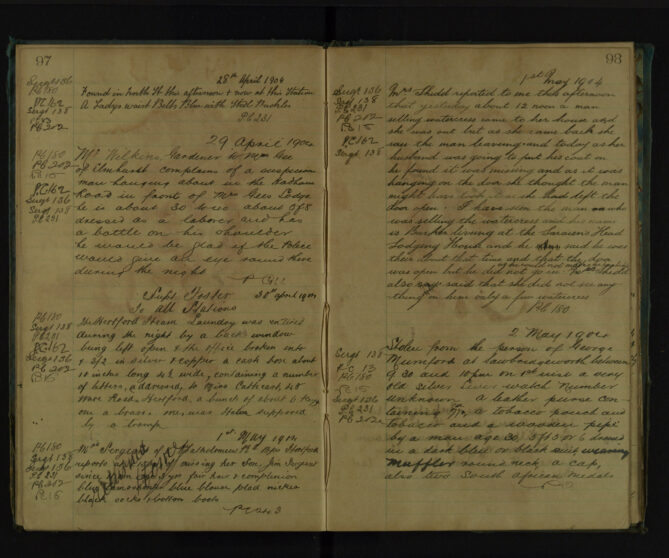 97
28th April 1904
Sergt 136
PC 180
PC 162
Sergt 138
PC 202
Found in North St this afternoon & now at this Station
A Ladys waist Belt Blue with Steel Buckle
PC 231
29 April 1904
PC 180
PC 202
PC 15
PC 162
Sergt 136
Sergt 138
PC 231
Mr Wilkins Gardener to Mrs Gee
of Elmhurst complains of a suspicious
man hanging about in the Hadham
Road in front of Mrs Gees Lodge
he is about 30 to 40 about 5ft 8
dressed as a laborer and has
a bottle on his shoulder
he would be glad if the Police
would give an eye round there
during the night
Supt Foster 30th April 1904
To all Stations
PC 180
Sergt 138
PC 231
PC 162
Sergt 136
PC 202
PC 15
The Hertford Steam Laundry was entered
during the night by a back window
being left open & the office broken into
& 5/2 in silver & copper a cash box about
10 inches long 4½ wide, containing a number
of letters, addressed, to Miss
Ware Road, Hertford, a bunch of about 6 keys
one a brass, was stolen supposed
by a tramp
1st May 1904
PC 180
Sergt 138
Sergt 136
PC 231
PC 202
PC 15
Mrs Sergeant of Bartholomew Rd
reports missing her Son, Jim
since fair hair & complexion
blue blue blouse plad necker
black socks & button boots
98
1st May 1904
Sergt 136
Sergt 138
PC 231
PC 202
PC 15
PC 162
Sergt 138
Mrs Shedd reported to me this afternoon
that yesterday about 12 noon a man
selling watercress came to her house and
she was out but as she came back she
saw the man leaving and today as her
husband was going to put his coat on
he found it was missing and as it was
hanging on the door she thought the man
might have had it as she had left the
door open. I have seen the man who
was selling the watercress and his name
is Barker living at the Saracens Head
Lodging House and he said he was
there about that time and that the door
was open but he did not go in Mrs Shedd
also says said that she did not see any
thing on him only a few watercress
PC 180
2 May 1904
Sergt 138
PC 180
PC 15
Sergt 136
PC 231
PC 202
Stolen from the person of George
Mumford at Sawbridgeworth between
9 30 and 10 pm on 1st inst a very
old Silver Lever watch Number
unknown a leather purse con
taining a tobacco pouch and
tobacco and a wooden pipe
by a man age 30 5ft 5 or 6 dressed
in a dark blue or black suit wearing
muffler round neck, a cap,
also two South African Medals